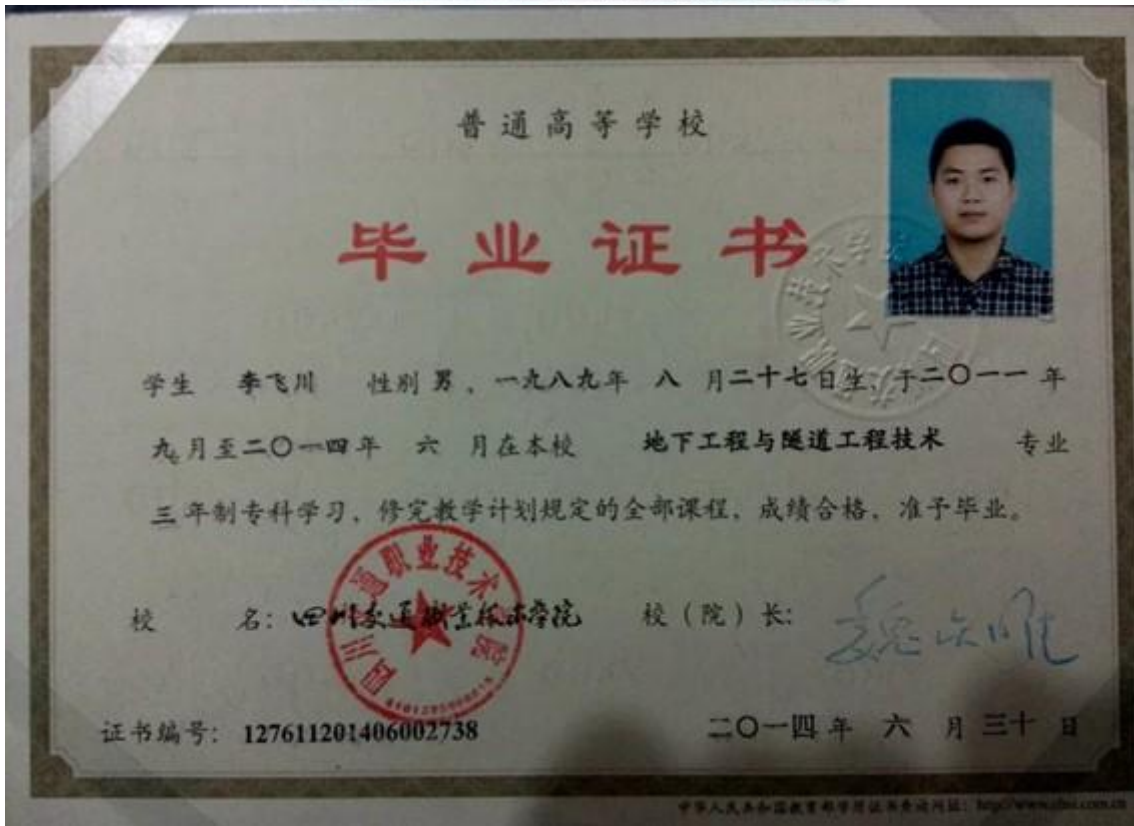 普通高等学校
毕业证书
学生 李飞川 性别 男，一九八九年 八 月二十七日生，于二〇一一 年
九月至二〇一四年 六 月在本校 地下工程与隧道工程技术 专业
三 年制专科学习，修完教学计划规定的全部课程，成绩合格，准予毕业。
校 名：四川交通职业技术学院 校（院）长：
证书编号：127611201406002738 二〇一四年 六 月三十 日
中华人民共和国教育部学历证书查询网址：http://www.chsi.com.cn